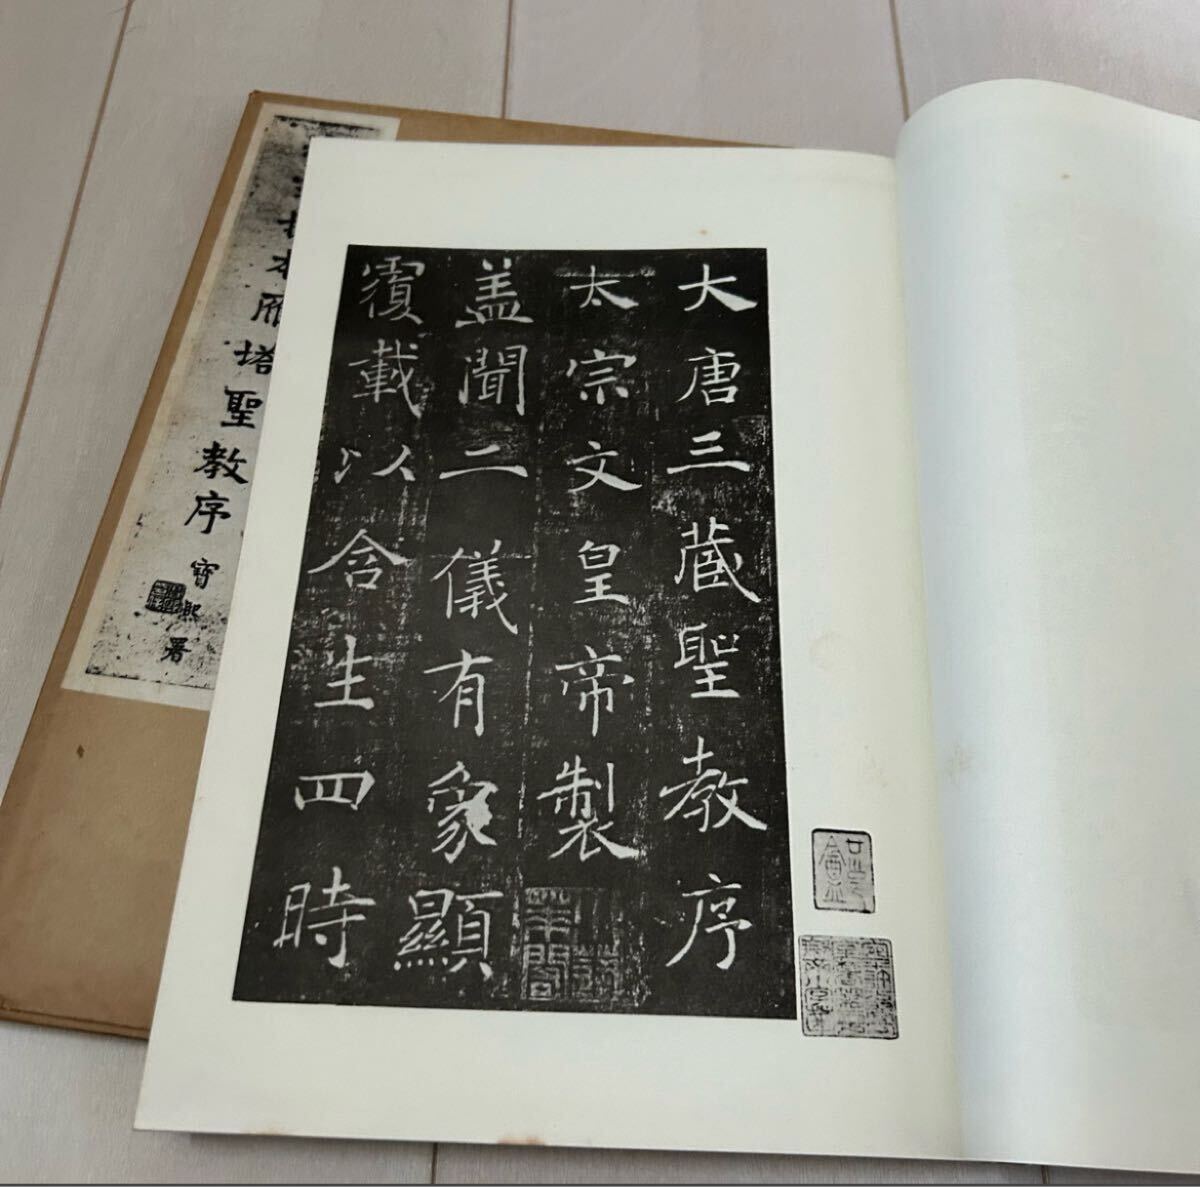 大唐三藏聖教序
太宗文皇帝製
盖聞二儀有象顯
覆載以含生四時
拓本雁塔聖教序
寶熙署